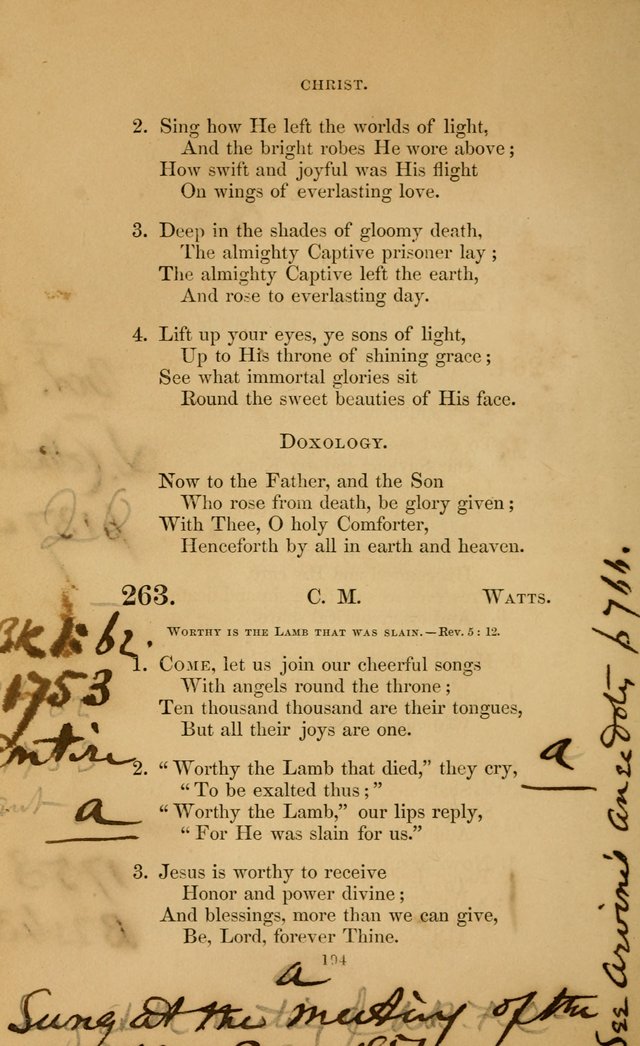 CHRIST.
2. Sing how He left the worlds of light,
And the bright robes He wore above;
How swift and joyful was His flight
On wings of everlasting love.
3. Deep in the shades of gloomy death,
The almighty Captive prisoner lay;
The almighty Captive left the earth,
And rose to everlasting day.
4. Lift up your eyes, ye sons of light,
Up to His throne of shining grace;
See what immortal glories sit
Round the sweet beauties of His face.
DOXOLOGY.
Now to the Father, and the Son
Who rose from death, be glory given;
With Thee, O holy Comforter,
Henceforth by all in earth and heaven.
263. C. M. WATTS.
WORTHY IS THE LAMB THAT WAS SLAIN.—Rev. 5: 12.
1. COME, let us join our cheerful songs
With angels round the throne;
Ten thousand thousand are their tongues,
But all their joys are one.
2. “Worthy the Lamb that died,” they cry,
“To be exalted thus;”
“Worthy the Lamb,” our lips reply,
“For He was slain for us.”
3. Jesus is worthy to receive
Honor and power divine;
And blessings, more than we can give,
Be, Lord, forever Thine.
194
Bk 1: 62.
1753
Entire
a
a
See Arvine's Anecdots p 766.
a
Sung at the meeting of the